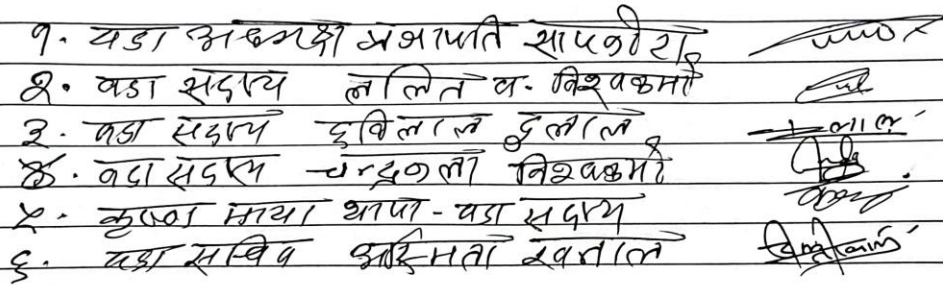 १. वडा अध्यक्ष प्रजापति सापकोटा
२. वडा सदस्य ललित व. विश्वकर्मा
३. वडा सदस्य छविलाल दुलाल
४. वडा सदस्य चन्द्रकला विश्वकर्मा
५. कृष्णा माया थापा - वडा सदस्य
६. वडा सचिव अस्मिता खनाल